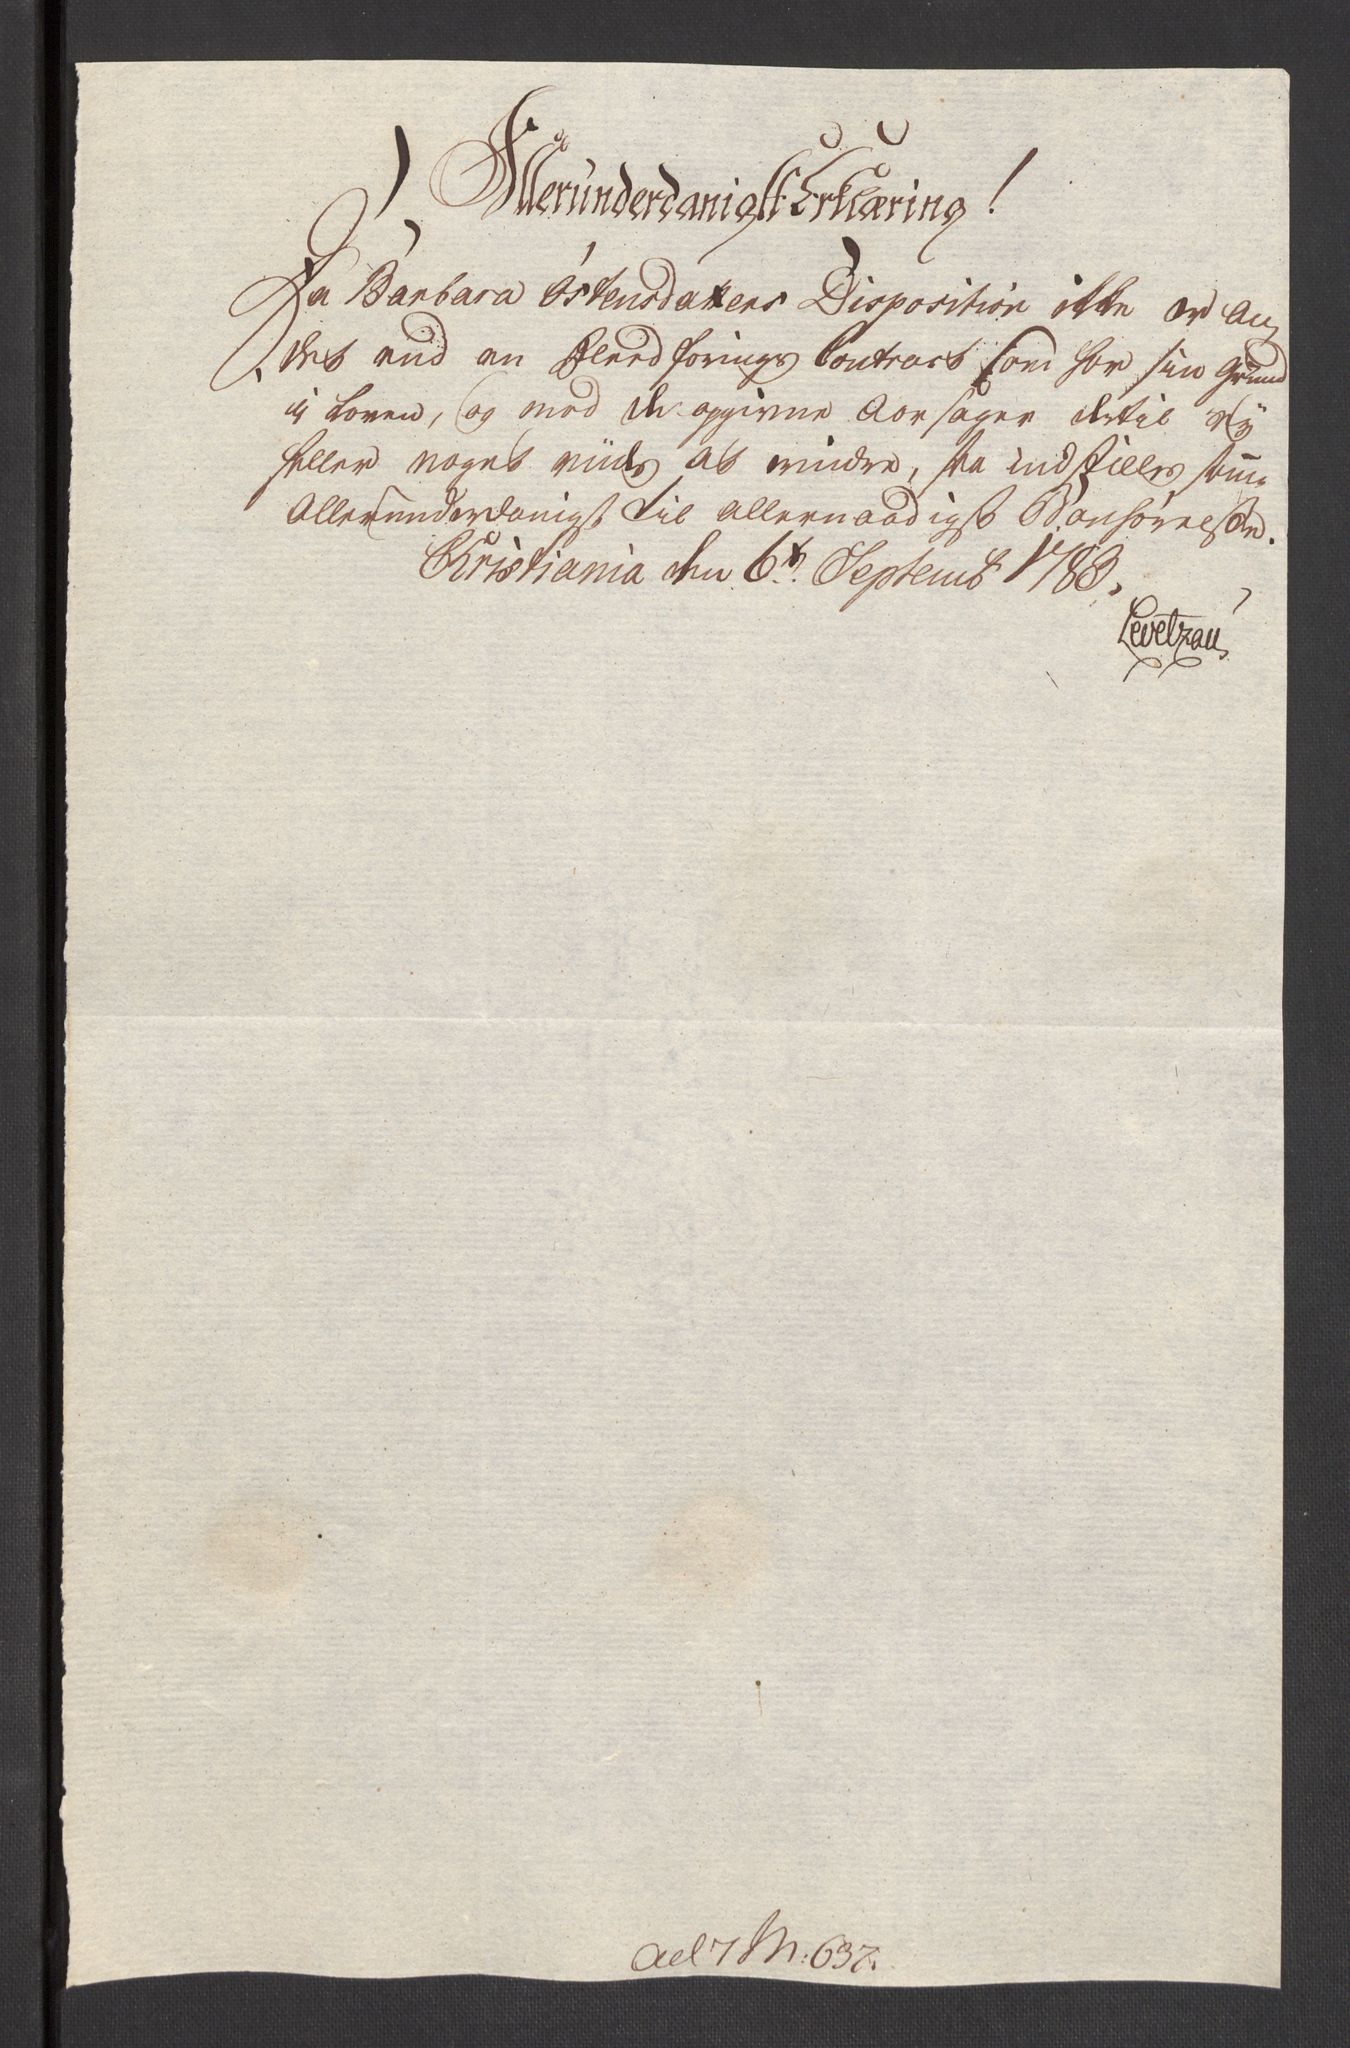 Allerunderdanigst Erklæring!
Da Barbara Østensdatters Disposition ikke er an
det end en Fledførings Contract som har sin Grund
ij Loven, og mod de opgivne Aarsager dertil ey
heller noget viides at erindre, saa indstilles samme
Allerunderdanigst til allernaadigst Bønhørelse.
Christiania den 6te Septemb 1783.
Levetzau
ad 7 N: 637.